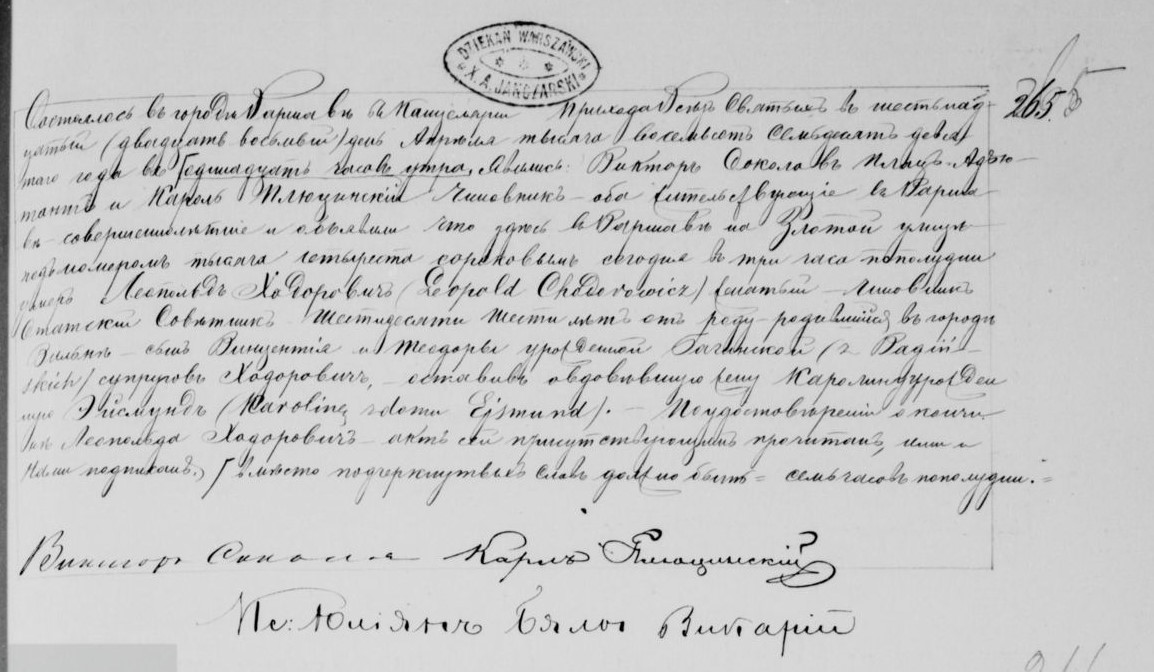 DZIEKAN WARSZAWSKI
X. A. JANCZARSKI
265.
Состоялось въ городѣ Варшавѣ въ Канцеляріи Прихода Всѣхъ Святыхъ въ шестьнад-
цатый (двадцать восьмый) день Апрѣля тысяча восемьсотъ семьдесятъ девя-
таго года въ одинадцать часовъ утра, Явились: Викторъ Соколовъ Плацъ-Адъю-
тантъ и Карль Чиновникъ – оба жительствующіе въ Варша-
вѣ – совершеннолѣтніе и объявили что здѣсь въ Варшавѣ на Злотой улицѣ
подъ номеромъ тысяча четыреста сороковымъ сегодня въ три часа пополудни
умеръ Леопольдъ Ходоровичъ (Leopold Chodorowicz) женатый – Чиновникъ
Статскій Совѣтникъ – Шестидесяти шести лѣтъ отъ роду – родившійся въ городѣ
Вильнѣ – сынъ Винцентія и Теодоры урожденной (z
skich) супруговъ Ходоровичъ, – оставивъ овдовѣвшую жену Каролину урожден
ную Эйсмундъ (Karolinę z domu Ejsmund). – По удостовѣреніи о кончи
нѣ Леопольда Ходоровичъ – актъ сей присутствующимъ прочитанъ, ими и
Нами подписанъ.) вмѣсто подчеркнутыхъ словъ должно быть = семь часовъ пополудни. =
Викторъ Карлъ
Кс: Юліянъ Бялко Викарій